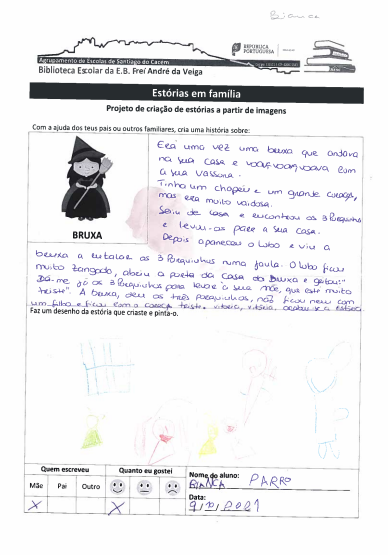 Bianca
REPÚBLICA PORTUGUESA
Agrupamento de Escolas de Santiago do Cacém
Biblioteca Escolar da E.B. Frei André da Veiga
Estórias em família
Projeto de criação de estórias a partir de imagens
Com a ajuda dos teus pais ou outros familiares, cria uma história sobre:
BRUXA
Era uma vez uma bruxa que andava
na sua casa e com
a sua vassoura.
Tinha um chapéu e um grande
mas era muito vaidosa.
Saiu de casa e encontrou os 3 Porquinhos
e levou-os para a sua casa.
Depois apareceu o lobo e viu a
bruxa a os 3 Porquinhos numa jaula. O lobo ficou
muito zangado, abriu a porta da casa da Bruxa e gritou:"
Dá-me já os 3 Porquinhos para levar à sua mãe, que está muito
triste". A bruxa, deu os três porquinhos, não ficou nem com
um filho e ficou com o coração triste. vitória, vitória, acabou-se a história
Faz um desenho da estória que criaste e pinta-o.
Quem escreveu
Quanto eu gostei
Mãe Pai Outro
X X
Nome do aluno: BIANCA PARRO
Data: